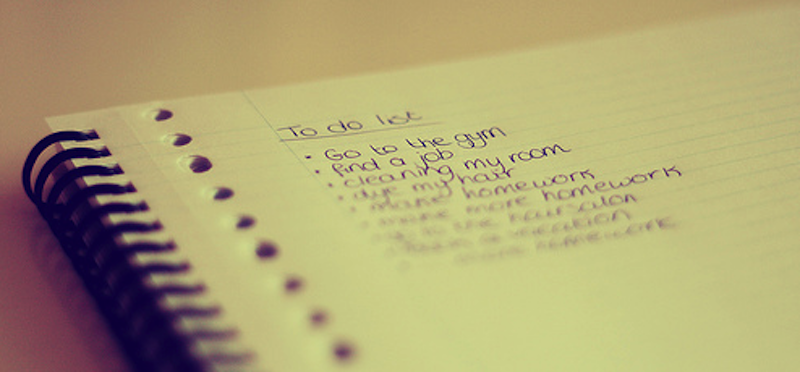 To do list
• Go to the gym
• find a job
• cleaning my room
• dye my hair
• make homework
• make more homework
• go to the hair salon
a vacation
more homework